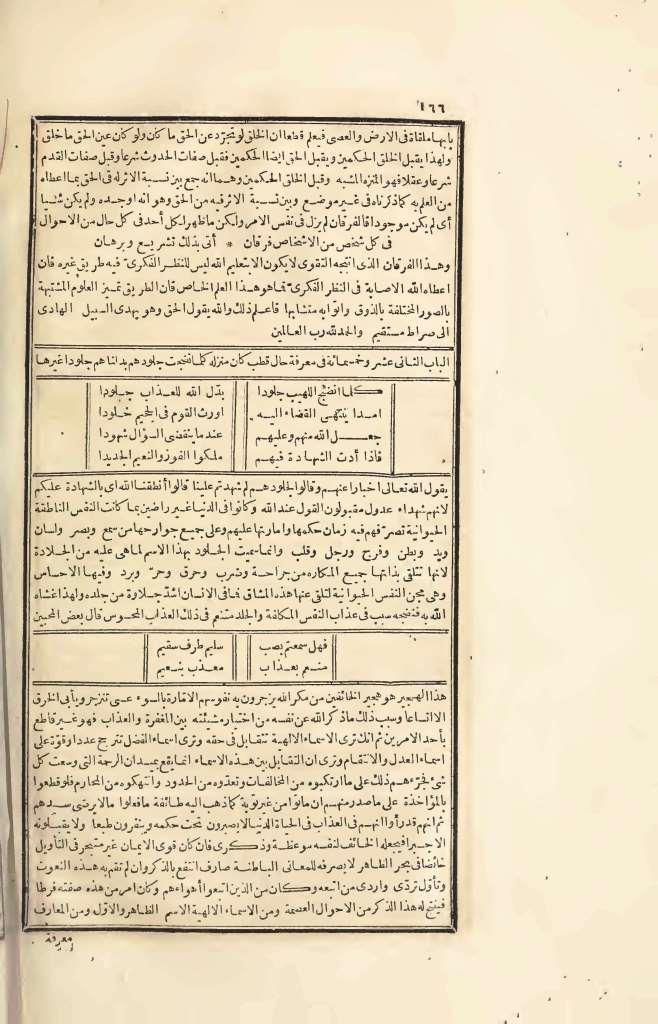 ١٦٦
بابها ملقاة فى الارض والعصى فيعلم قطعا ان الخلق لو تجرّد عن الحق ما كان ولو كان عين الحق ما خلق
ولهذا يقبل الخلق الحكمين ويقبل الحق ايضا الحكمين فقبل صفات الحدوث شرعا وقبل صفات القدم
شرعا وعقلا فهو المنزه المشبه وقبل الخلق الحكمين وهما انه جمع بين نسبة الاثر له فى الحق بما اعطاه
من العلم به كما ذكرناه فى غير موضع وبين نسبة الاثر فيه من الحق وهو انه اوجده ولم يكن شئيا
أى لم يكن موجودا فالفرقان لم يزل فى نفس الامر ولكن ما ظهر لكل أحد فى كل حال من الاحوال
فى كل شخص من الاشخاص فرقان * أتى بذلك تشريع وبرهان
وهذا الفرقان الذى انتجه التقوى لا يكون الا بتعليم الله ليس للنظر الفكرىّ فيه طريق غيره فان
اعطاه الله الاصابة فى النظر الفكرىّ فما هو هذا العلم الخاص فان الطريق تميز العلوم المشتبهة
بالصور المختلفة بالذوق واتوا به متشابها فاعلم ذلك والله يقول الحق وهو يهدى السبيل الهادى
الى صراط مستقيم والحمد لله رب العالمين
الباب الثانى عشر وخمسمائة فى معرفة حال قطب كان منزله كلما نضجت جلودهم بدلناهم جلودا غيرها
كلما انضج اللهيب جلودا بدّل الله للعذاب جلودا
امدا ينتهى القضاء اليه اورث القوم فى الجحيم خلودا
جعل الله منهم وعليهم عندما ينقضى السؤال شهودا
فاذا أدت الشهادة فيهم ملكوا الفوز والنعيم الجديدا
يقول الله تعالى اخبارا عنهم وقالوا لجلودهم لم شهدتم علينا قالوا أنطقنا الله اى بالشهادة عليكم
لانهم شهداء عدول مقبولون القول عند الله وكانوا فى الدنيا غير راضين بما كانت النفس الناطقة
الحيوانية تصرّفهم فيه زمان حكمها وامارتها عليهم وعلى جميع جوارحها من سمع وبصر ولسان
ويد وبطن وفرج ورجل وقلب وانما سميت الجلود بهذا الاسم لما هى عليه من الجلادة
لانها تتلقى بذاتها جميع المكاره من جراحة وضرب وحرق وحرّ وبرد وفيها الاحساس
وهى مجن النفس الحيوانية لتلقى عنها هذه المشاق فما فى الانسان اشدّ جلادة من جلده ولهذا غشاه
الله به فنضجه سبب فى عذاب النفس المكلفة والجلد متنعم فى ذلك العذاب المحسوس قال بعض المحبين
فهل سمعتم بصب سليم طرف سقيم
منعم بعذاب معذب بنعيم
هذا الهجير هو هجير الخائفين من مكر الله يزجرون به نفوسهم الامّارة بالسوء عسى تنزجر ويأبى الخرق
الا اتساعا وسبب ذلك ما ذكر الله عن نفسه من اختيار مشيئته بين المغفرة والعذاب فهو غير قاطع
بأحد الامرين ثم انك ترى الاسماء الالهية تتقابل فى حقه وترى اسماء الفضل تترجح عددا وقوّة على
اسماء العدل والانتقام وترى ان التقابل بين هذه الاسماء انما يقع بميدان الرحمة التى وسعت كل
شئ فجرّءهم ذلك على ما ارتكبوه من المخالفات وتعدّوه من الحدود وانتهكوه من المحارم فلو قطعوا
بالمؤاخذة على ما صدر منهم ان ماتوا من غير توبة كما ذهب اليه طائفة ما فعلوا ما لا يرضى سيدهم
ثم انهم قد رأوا انهم فى العذاب فى الحياة الدنيا لا يصبرون تحت حكمه وينفرون طبعا ولا يقبلونه
الا جبرا فيجعله الخائف لنفسه موعظة وذكرى فان كان قوى الايمان غير متبحر فى التأويل
خائضا فى بحر الظاهر لا يصرفه للمعانى الباطنة صارف انتفع بالذكر وان لم تقم به هذه النعوت
وتأوّل تردّى واردى من اتبعه وكان من الذين اتبعوا أهواءهم وكان امر من هذه صفته فرطا
فينتج له هذا الذكر من الاحوال العصمة ومن الاسماء الالهية الاسم الظاهر والاوّل ومن المعارف
معرفة